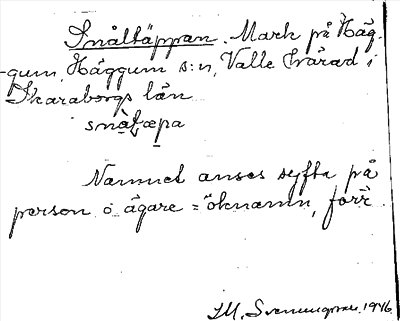 Snåltäppan. Mark på Häg-
gum, Häggum s:n, Valle härad i
Skaraborgs län
snà̠ƚæpa
Namnet anses syfta på
person o ägare = öknamn, förr
I.M. Svenungsson 1946